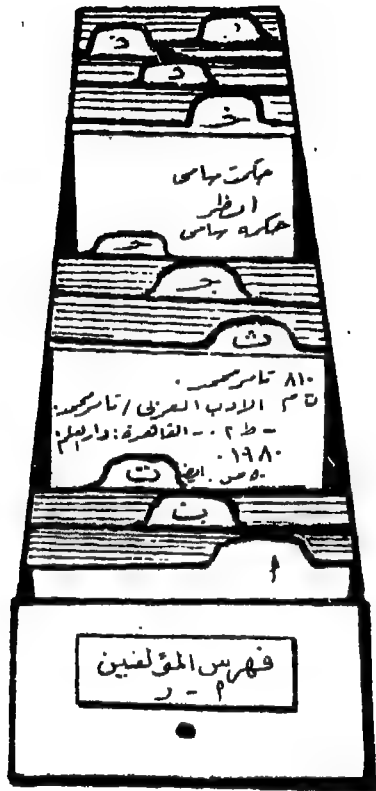 ذ
د
خ
حكمت سامى
انظر
حكمه سامى
ح
ج
ث
٨١٠ تامر محمد.
ت م الادب العربى / تامر محمد.
- ط ٢ .- القاهرة: دار العلم
١٩٨٠.
ص.
ت
ب
أ
فهرس المؤلفين
أ - ر